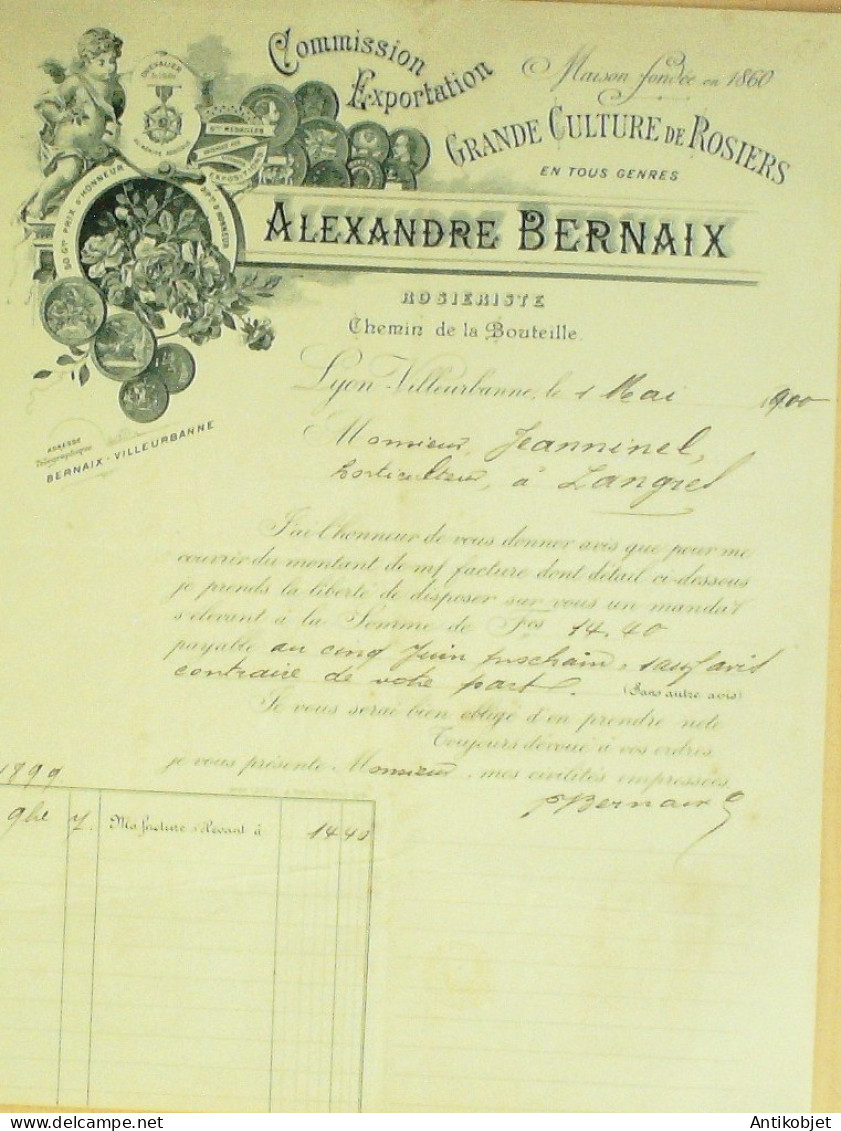 Commission
Exportation
Maison fondée en 1860
GRANDE CULTURE DE ROSIERS
EN TOUS GENRES
CHEVALIER
DU MÉRITE AGRICOLE
MÉDAILLES
EXPOSITIONS
50 Gds PRIX D'HONNEUR
ALEXANDRE BERNAIX
ROSIERISTE
Chemin de la Bouteille.
Lyon-Villeurbanne, le 1 Mai 1900
ADRESSE
Télégraphique
BERNAIX-VILLEURBANNE
Monsieur, Jeanninel,
horticulteur, à Langres
J'ai l'honneur de vous donner avis que pour me
couvrir du montant de m/ facture dont détail ci-dessous
je prends la liberté de disposer sur vous un mandat
s'élevant à la Somme de Fcs 14.40
payable au cinq Juin prochain, sauf avis
contraire de votre part.
(Sans autre avis)
Je vous serai bien obligé d'en prendre note
Toujours dévoué à vos ordres,
je vous présente Monsieur, mes civilités empressées
Bernaix
1899
9bre 7. Ma facture s'élevant à 14 40
Antikobjet